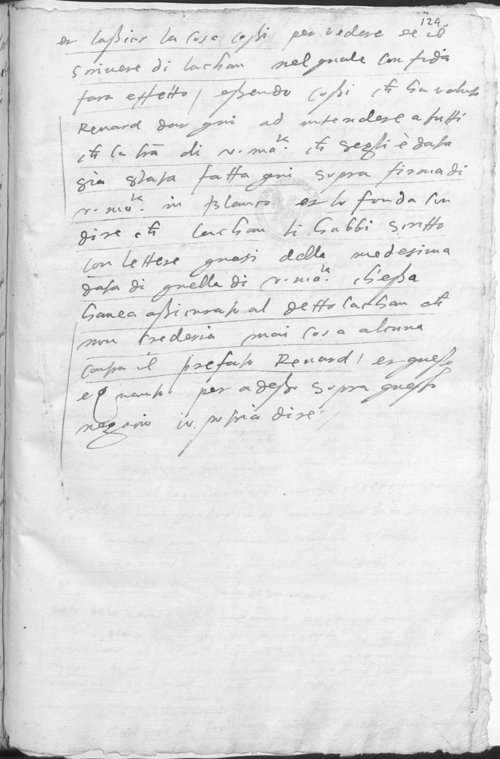 124
et lassiar la cosa cossi per vedere se il
scrivere di lachau nel quale confida
fara effetto / essendo cossi ch ha voluto
Renard dar qui ad intendere a tutti
ch la lra di v. ma.ta ch segli è data
gia stata fatta qui supra firma di
v. ma.ta in blanco et lo fonda in
dire ch lachau li habbi scritto
con lettere quasi della medesima
data di quella di v. ma.ta chessa
havea assicurato al detto lachau ch
non crederia mai cosa alcuna
contra il prefato Renard / et questo
e quanto per adesso supra questo
negotio io potria dire /